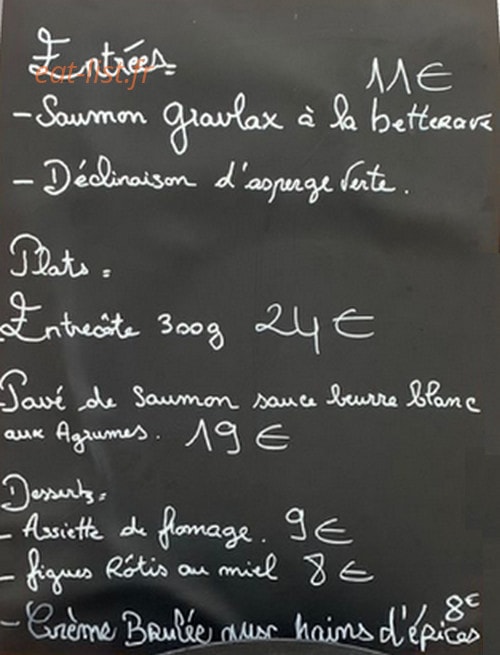 Entrées=
eat-list.fr
11€
- Saumon gravlax à la betterave
- Déclinaison d'asperge verte.
Plats =
Entrecôte 300g 24€
Pavé de saumon sauce beurre blanc
aux Agrumes. 19€
Desserts=
- Assiette de fromage. 9€
- figues Rôtis au miel 8€
- Crème Brulée aux pains d'épices 8€